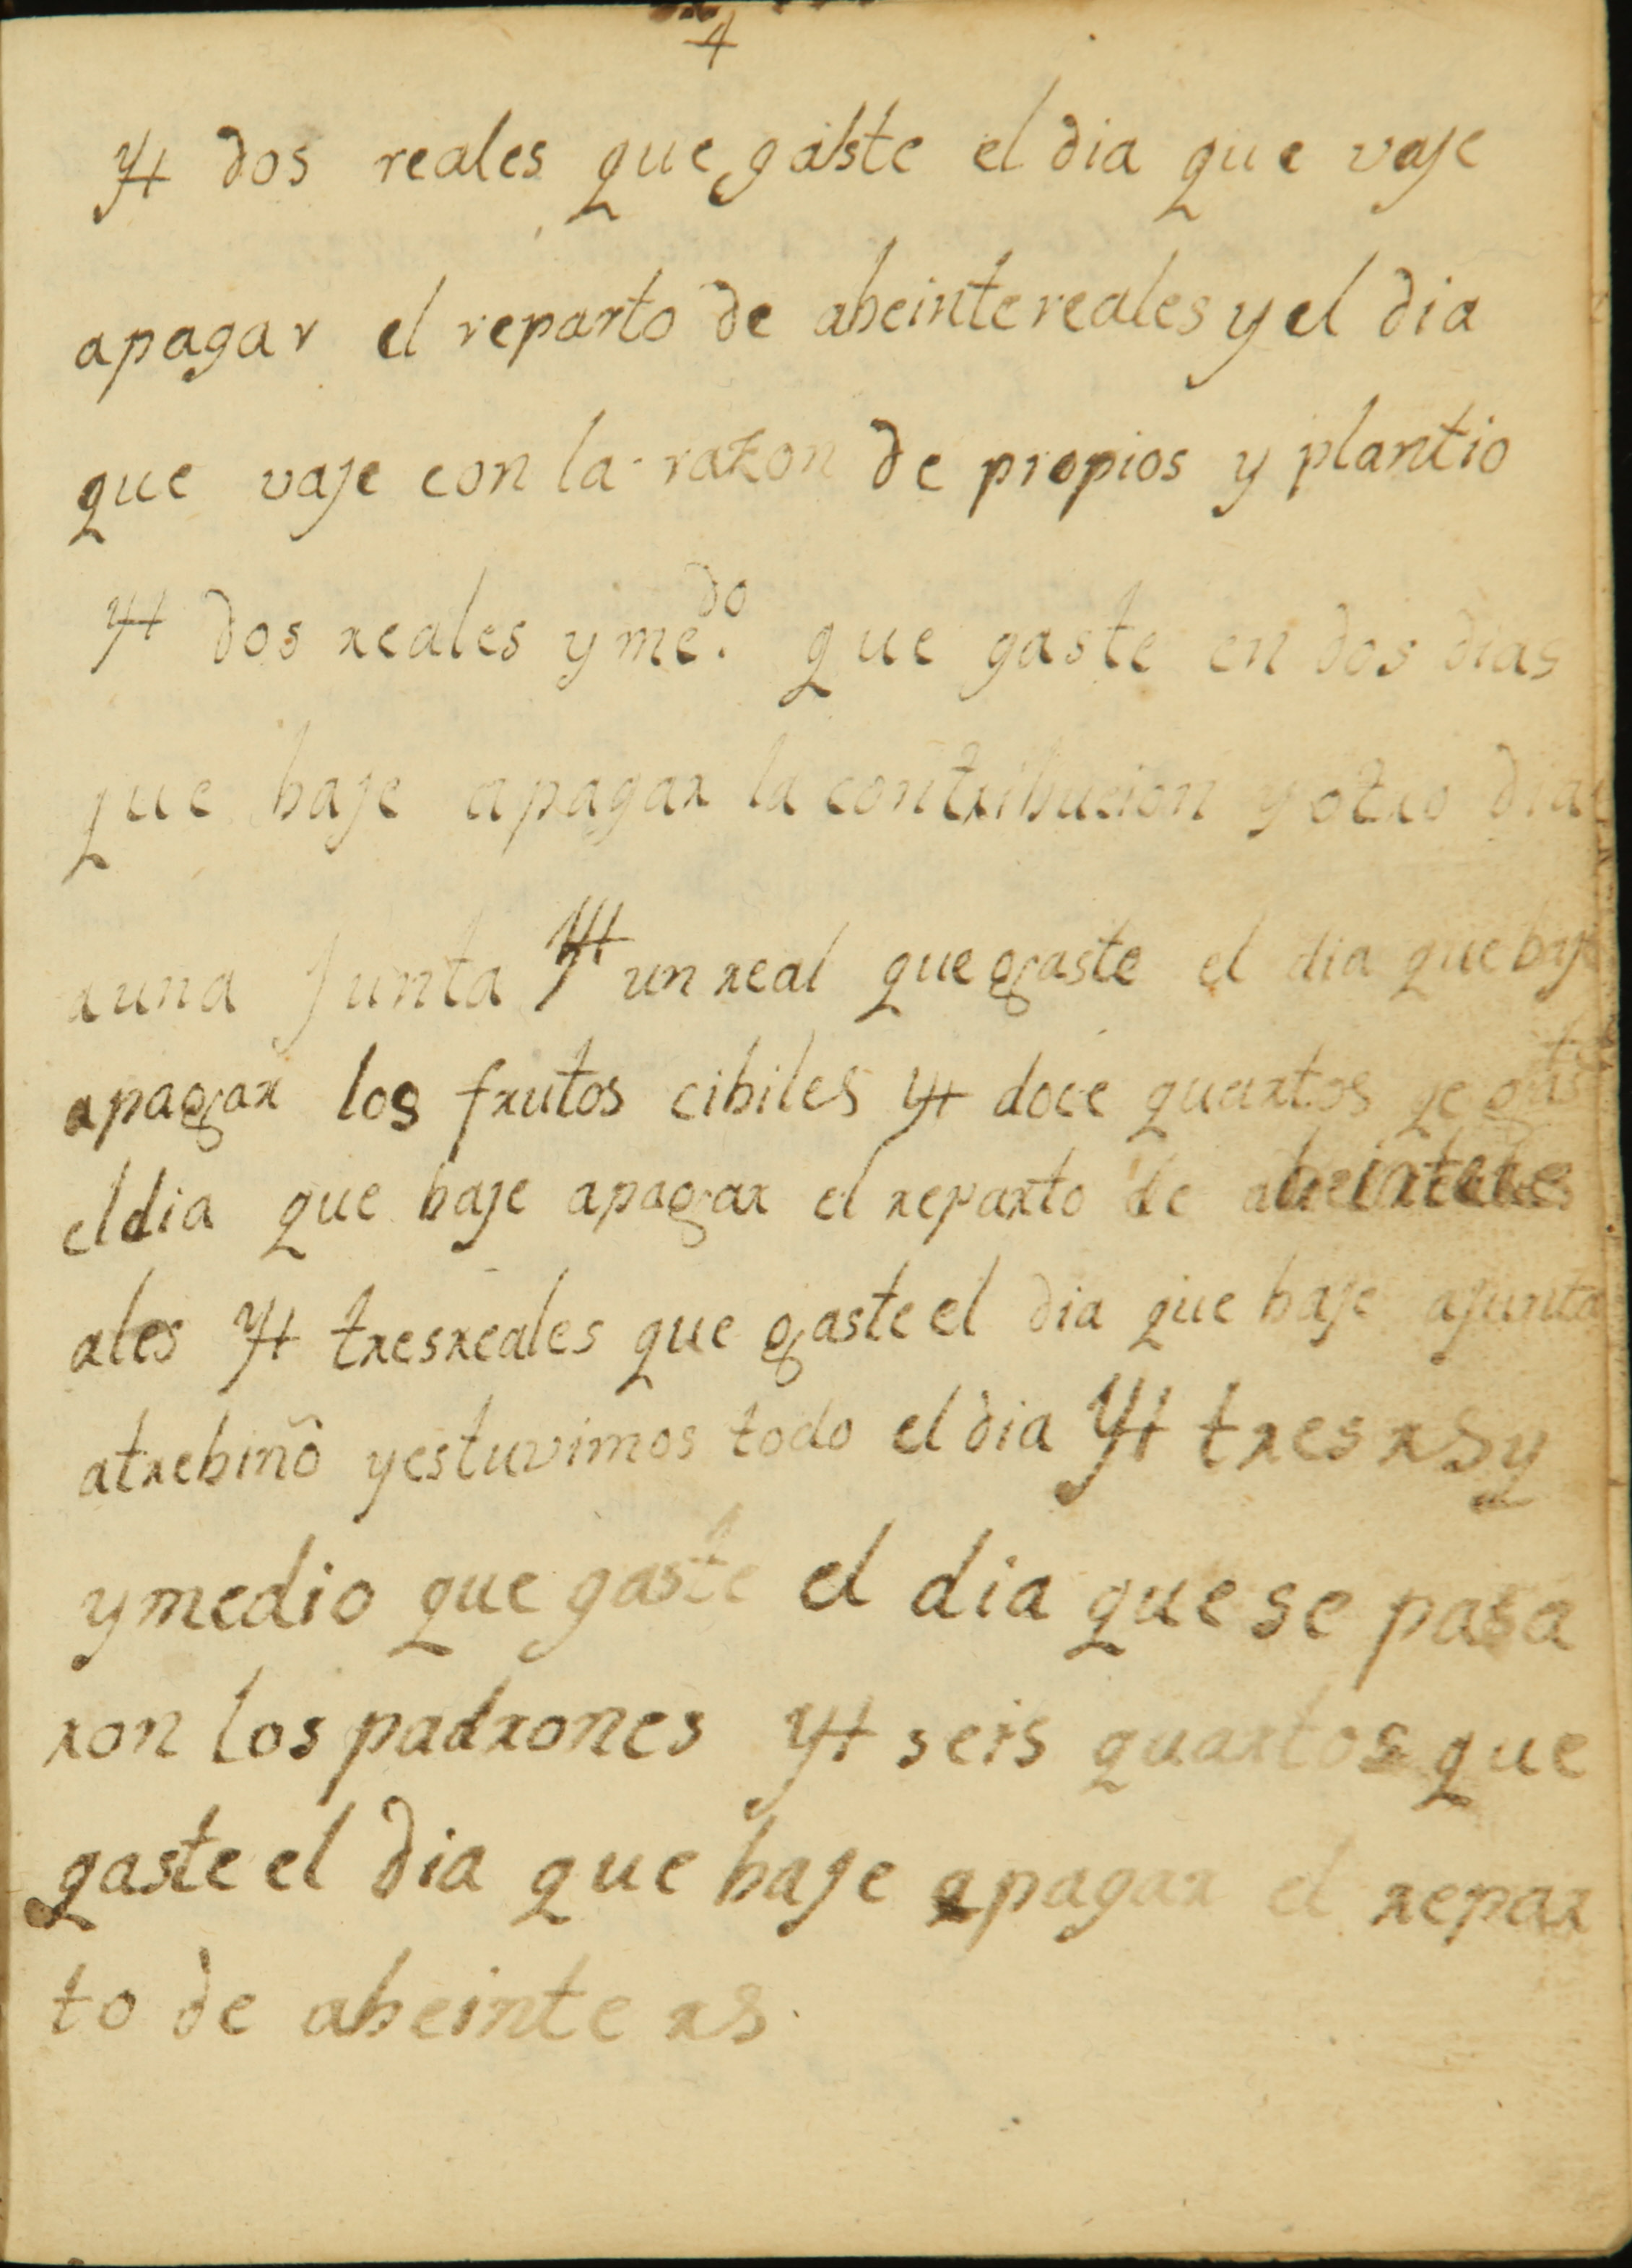 4
Yt dos reales que gaste el dia que vaje
apagar el reparto de abeinte reales y el dia
que vaje con la razon de propios y plantio
Yt dos reales y me.do que gaste en dos dias
que baje apagar la contribucion y otro dia
auna Junta Yt un real que gaste el dia que baje
apagar los frutos cibiles Yt doce quartos qe
el dia que baje apagar el reparto de abeintere
ales Yt tres reales que gaste el dia que baje ajunta
atrebiño y estuvimos todo el dia Yt tres rs y
y medio que gaste el dia que se pasa
ron los padrones Yt seis quartos que
gaste el dia que baje apagar el repar
to de abeinte rs.